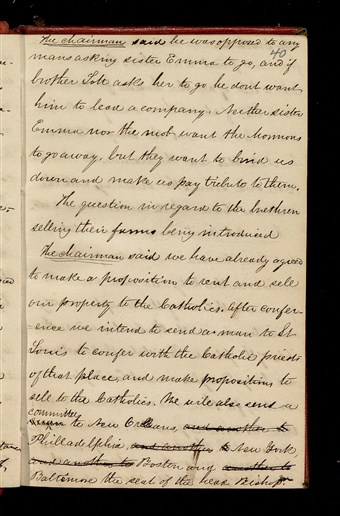 The chairman said he was opposed to any
40
mans asking sister Emma to go, and if
brother Tolt asks her to go he dont want
him to lead a company. Neither sister
Emma nor the mob want the Mormons
to go away, but they want to bind us
down and make us pay tribute to them.
The question in regard to the brethren
selling their farms being introduced
The chairman said we have already agreed
to make a proposition to rent and sell
our property to the Catholics. After confer-
ence we intend to send a man to St
Louis to confer with the Catholic priests
of that place, and make propositions to
sell to the Catholics. We will also send a
committee
to New Orleans, and another to
Philladelphia and another to New York,
and another to Boston and another to
Baltimore the seat of the head Bishop.